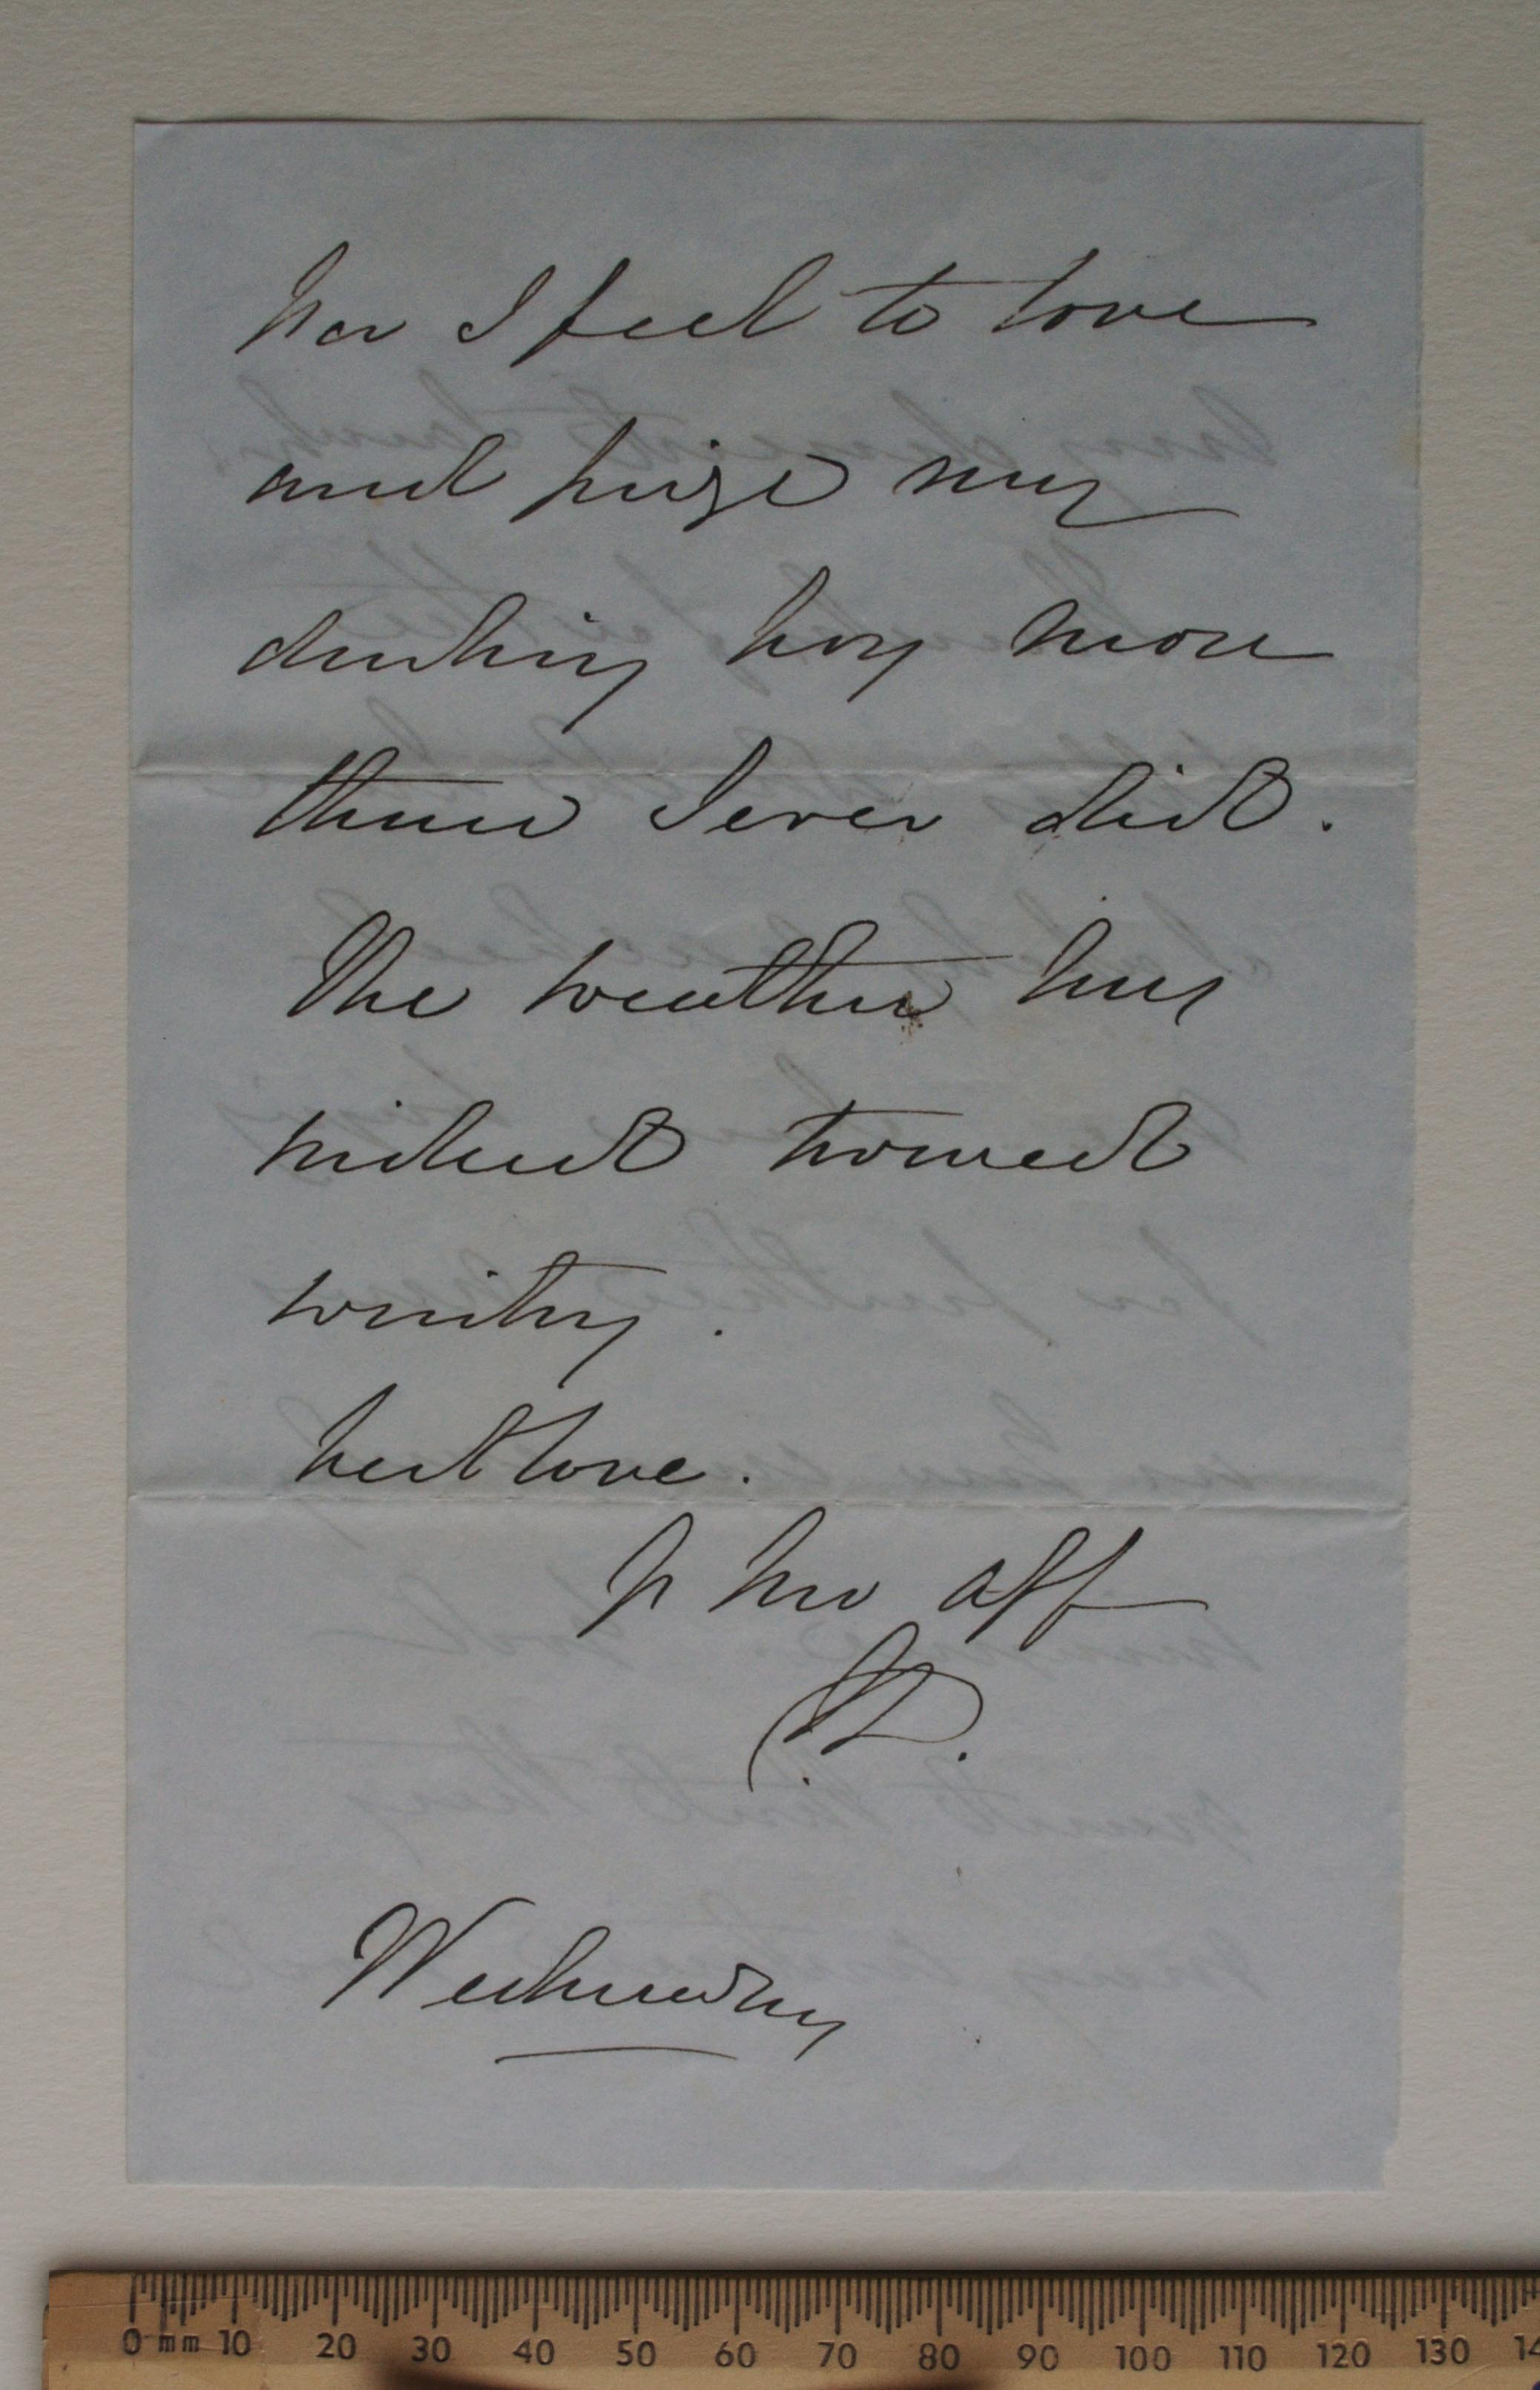 for I feel to love
and prize my
darling boy more
than I ever did.
The weather has
indeed turned
wintry.
best love.
yr
aff
Wednesday
0 mm 10 20 30 40 50 60 70 80 90 100 110 120 130 14